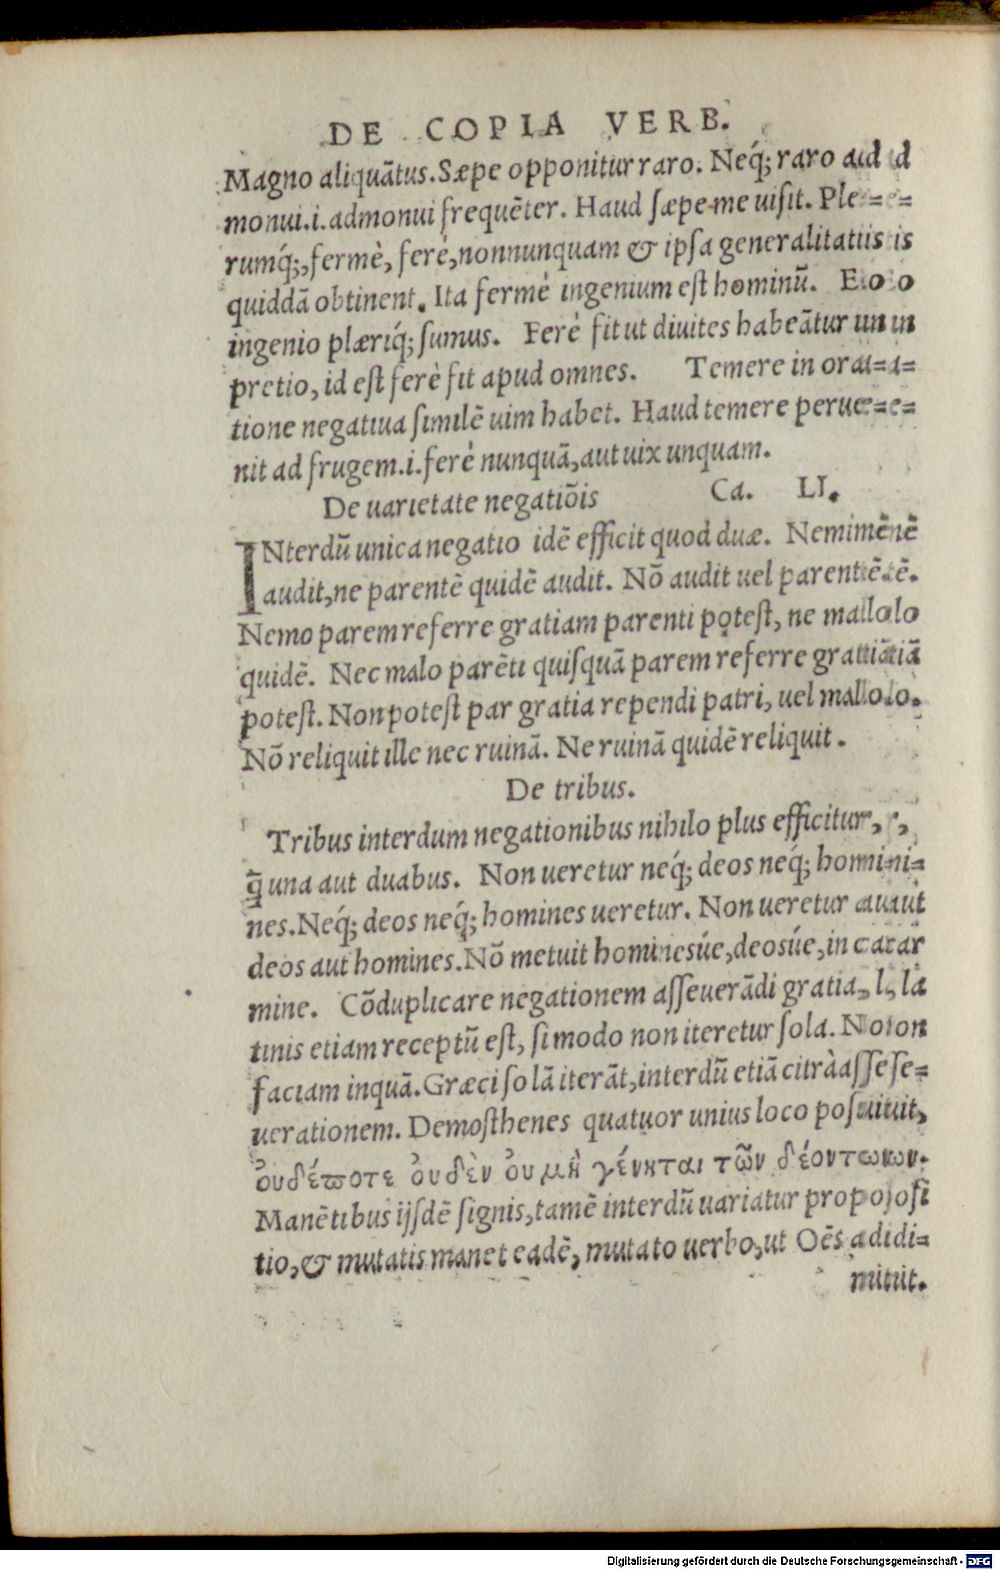 DE COPIA VERB.
Magno aliquãtus. Sæpe opponitur raro. Neq́; raro ad
monui.i.admonui frequẽter. Haud sæpe me uisit. Ple=
rumq́;, fermè, ferè, nonnunquam & ipsa generalitatis
quiddã obtinent. Ita fermè ingenium est hominũ. Eo
ingenio plæriq́; sumus. Ferè fit ut diuites habeãtur in
pretio, id est ferè fit apud omnes. Temere in ora=
tione negatiua similẽ uim habet. Haud temere perue=
nit ad frugem.i.ferè nunquã, aut uix unquam.
De uarietate negatiõis Ca. LI.
INterdũ unica negatio idẽ efficit quod duæ. Neminẽ
audit, ne parentẽ quidẽ audit. Nõ audit uel parentẽ.
Nemo parem referre gratiam parenti potest, ne malo
quidẽ. Nec malo parẽti quisquã parem referre gratiã
potest. Non potest par gratia rependi patri, uel malo.
Nõ reliquit ille nec ruinã. Ne ruinã quidẽ reliquit.
De tribus.
Tribus interdum negationibus nihilo plus efficitur,
q̃ una aut duabus. Non ueretur neq́; deos neq́; homi=
nes. Neq́; deos neq́; homines ueretur. Non ueretur aut
deos aut homines. Nõ metuit hominesúe, deosúe, in car
mine. Cõduplicare negationem asseuerãdi gratia, la
tinis etiam receptũ est, si modo non iteretur sola. Non
faciam inquã. Græci solã iterãt, interdũ etiã citrà asse=
uerationem. Demosthenes quatuor unius loco posuit,
ὀυδέποτε ὀυδὲν ὀυ μὴ γένηται τῶν δέοντων.
Manẽtibus ijsdẽ signis, tamẽ interdũ uariatur proposi
tio, & mutatis manet eadẽ, mutato uerbo, ut Oẽs adi=
mit.
Digitalisierung gefördert durch die Deutsche Forschungsgemeinschaft - DFG